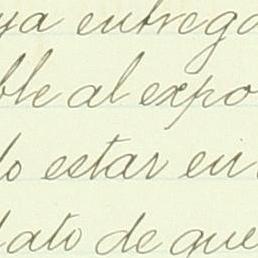 ya entrega
ble al expo
do estar en
dato de que